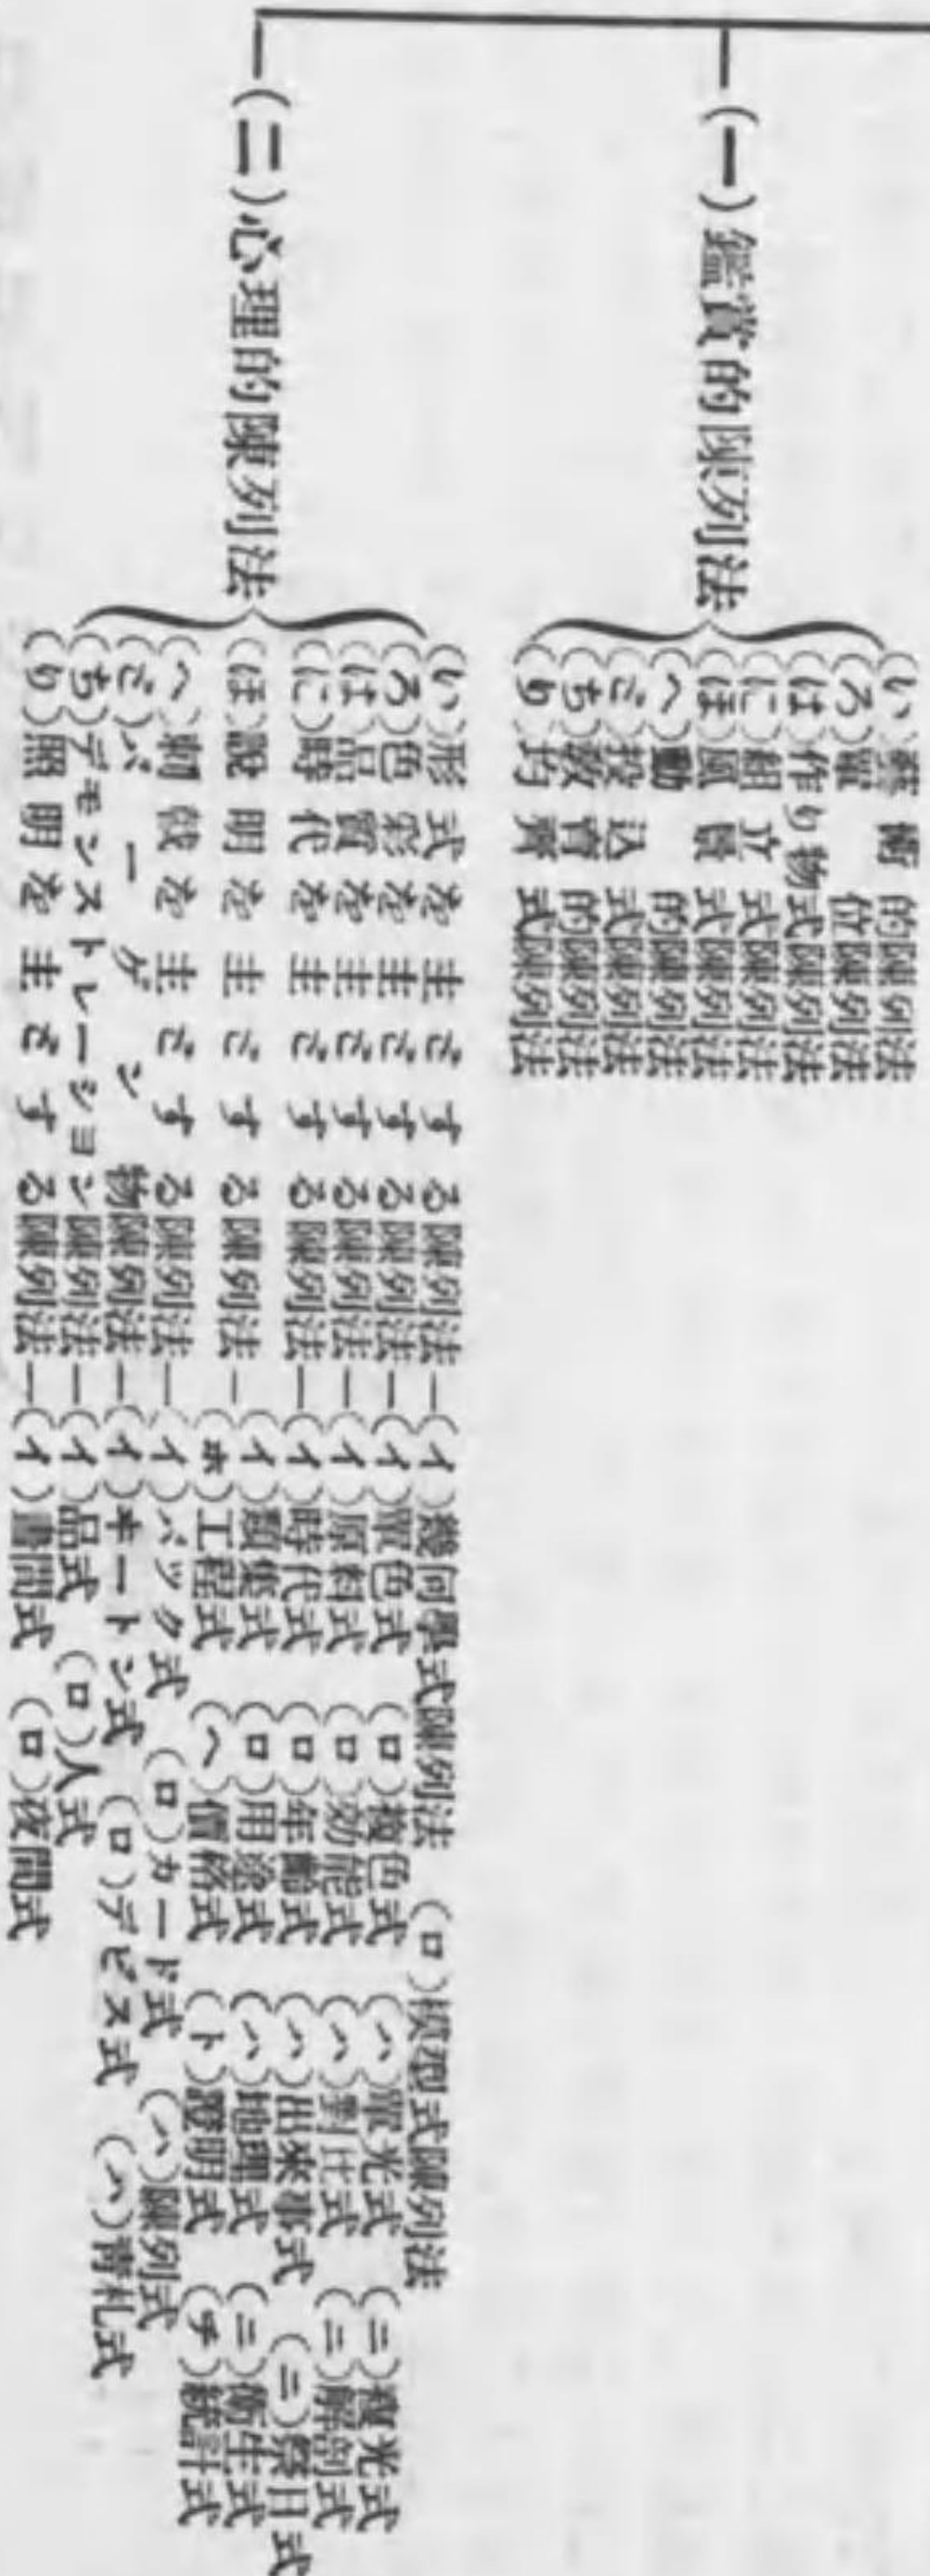 (一)鑑賞的陳列法
(い)藝術的陳列法
(ろ)單位陳列法
(は)作り物式陳列法
(に)組立式陳列法
(ほ)風景式陳列法
(へ)動的陳列法
(と)投込式陳列法
(ち)教育的陳列法
(り)均齊式陳列法
(二)心理的陳列法
(い)形式を主とする陳列法―(イ)幾何學式陳列法 (ロ)模型式陳列法
(ろ)色彩を主とする陳列法―(イ)單色式 (ロ)複色式 (ハ)單光式 (ニ)複光式
(は)品質を主とする陳列法―(イ)原料式 (ロ)効能式 (ハ)對比式 (ニ)解剖式
(に)時代を主とする陳列法―(イ)時代式 (ロ)年齡式 (ハ)出來事式 (ニ)祭日式
(ほ)說明を主とする陳列法―(イ)類集式 (ロ)用途式 (ハ)地理式 (ニ)衞生式
(ホ)工程式 (ヘ)價格式 (ト)證明式 (チ)統計式
(へ)刺戟を主とする陳列法―(イ)バック式 (ロ)カード式 (ハ)陳列式
(と)バーゲン物陳列法―(イ)キートン式 (ロ)デビス式 (ハ)靑札式
(ち)デモンストレーション陳列法―(イ)品式 (ロ)人式
(り)照明を主とする陳列法―(イ)晝間式 (ロ)夜間式